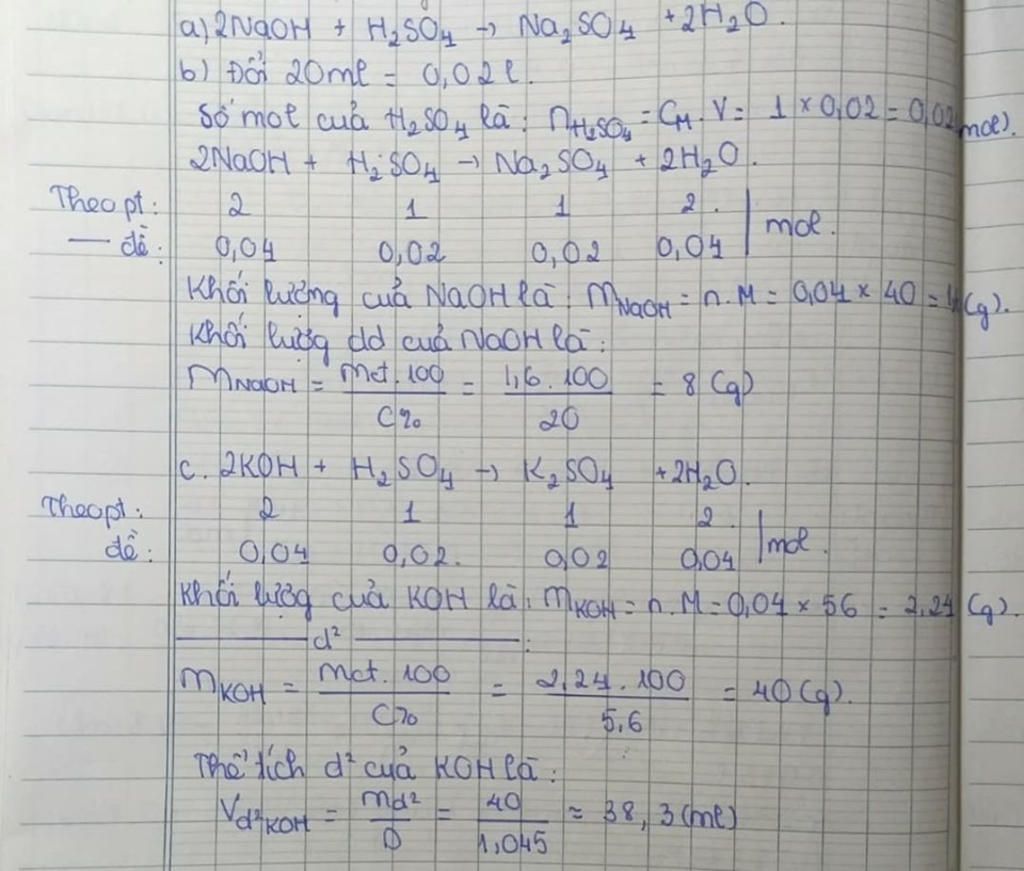 a) 2NaOH + H₂SO₄ → Na₂SO₄ + 2H₂O.
b) Đổi 20ml = 0,02l.
Số mol của H₂SO₄ là: nH₂SO₄ = CM . V = 1 × 0,02 = 0,02 mol).
2NaOH + H₂SO₄ → Na₂SO₄ + 2H₂O.
Theo pt: 2 1 1 2. | mol.
— đề: 0,04 0,02 0,02 0,04
Khối lượng của NaOH là: mNaOH = n.M = 0,04 × 40 = (g).
Khối lượg dd của NaOH là:
mNaOH = mct.100 / C% = 1,6.100 / 20 = 8 (g)
c. 2KOH + H₂SO₄ → K₂SO₄ + 2H₂O.
Theo pt: 2 1 1 2. | mol.
đề: 0,04 0,02. 0,02 0,04
Khối lượg của KOH là: mKOH = n.M = 0,04 × 56 = 2,24 (g).
——— d² ———:
mKOH = mct.100 / C% = 2,24.100 / 5,6 = 40 (g).
Thể tích d² của KOH là:
Vd²KOH = md² / D = 40 / 1,045 ≈ 38,3 (ml)